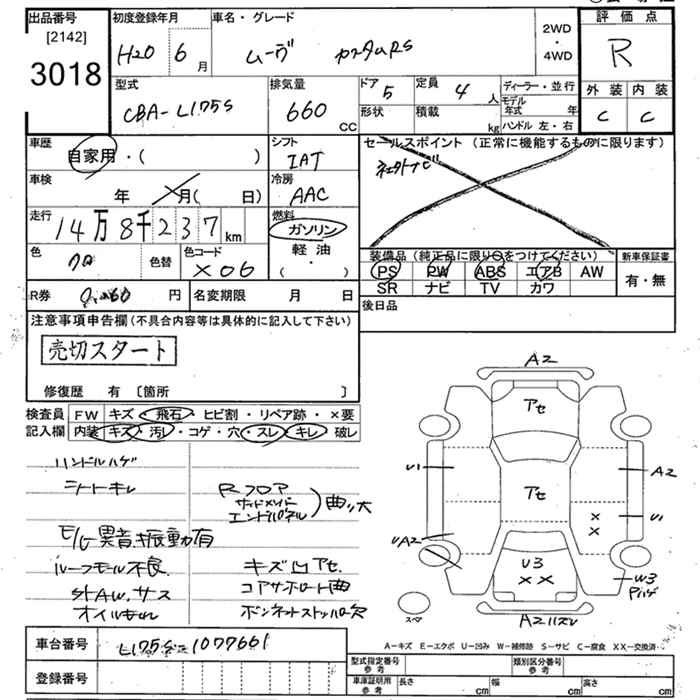 出品番号
[2142]
3018
初度登録年月
H20 6月
車名・グレード
ムーヴ カスタムRS
2WD
・
4WD
評価点
R
外装 内装
C C
型式
CBA-L175S
排気量
660 CC
ドア 5
定員 4人
形状
積載 kg
ディーラー・並行
モデル年式 年
ハンドル 左・右
車歴
自家用・( )
車検
年 月( 日)
走行
14万8千237km
色
クロ
色替
色コード
X06
シフト
IAT
冷房
AAC
燃料
ガソリン
軽油
( ・ )
セールスポイント (正常に機能するものに限ります)
装備品(純正品に限り○をつけてください)
PS PW ABS エアB AW
SR ナビ TV カワ
新車保証書
有・無
R券 円
名変期限 月 日
後日品
注意事項申告欄(不具合内容等は具体的に記入して下さい)
売切スタート
修復歴 有 〔箇所 〕
検査員 記入欄
FW キズ・飛石・ヒビ割・リペア跡・×要
内装 キズ・汚レ・コゲ・穴・スレ・キレ・破レ
ハンドルハゲ
シートキレ
Rフロア
サイドメンバー
エンドパネル
曲り大
E/G異音振動有
ルーフモール不良
キズ凹アセ
社AW.サス
コアサポート曲
オイルもれ
ボンネットストッパー欠
A2
アセ
U1
A2
アセ
U1
× ×
UA2
U3
× ×
W3
スペア
車台番号
L175S-1077661
登録番号
A-キズ E-エクボ U-凹み W-補修跡 S-サビ C-腐食 XX-交換済
型式指定番号 参考
類別区分番号 参考
車庫証明用 参考
長さ cm
幅 cm
高さ cm